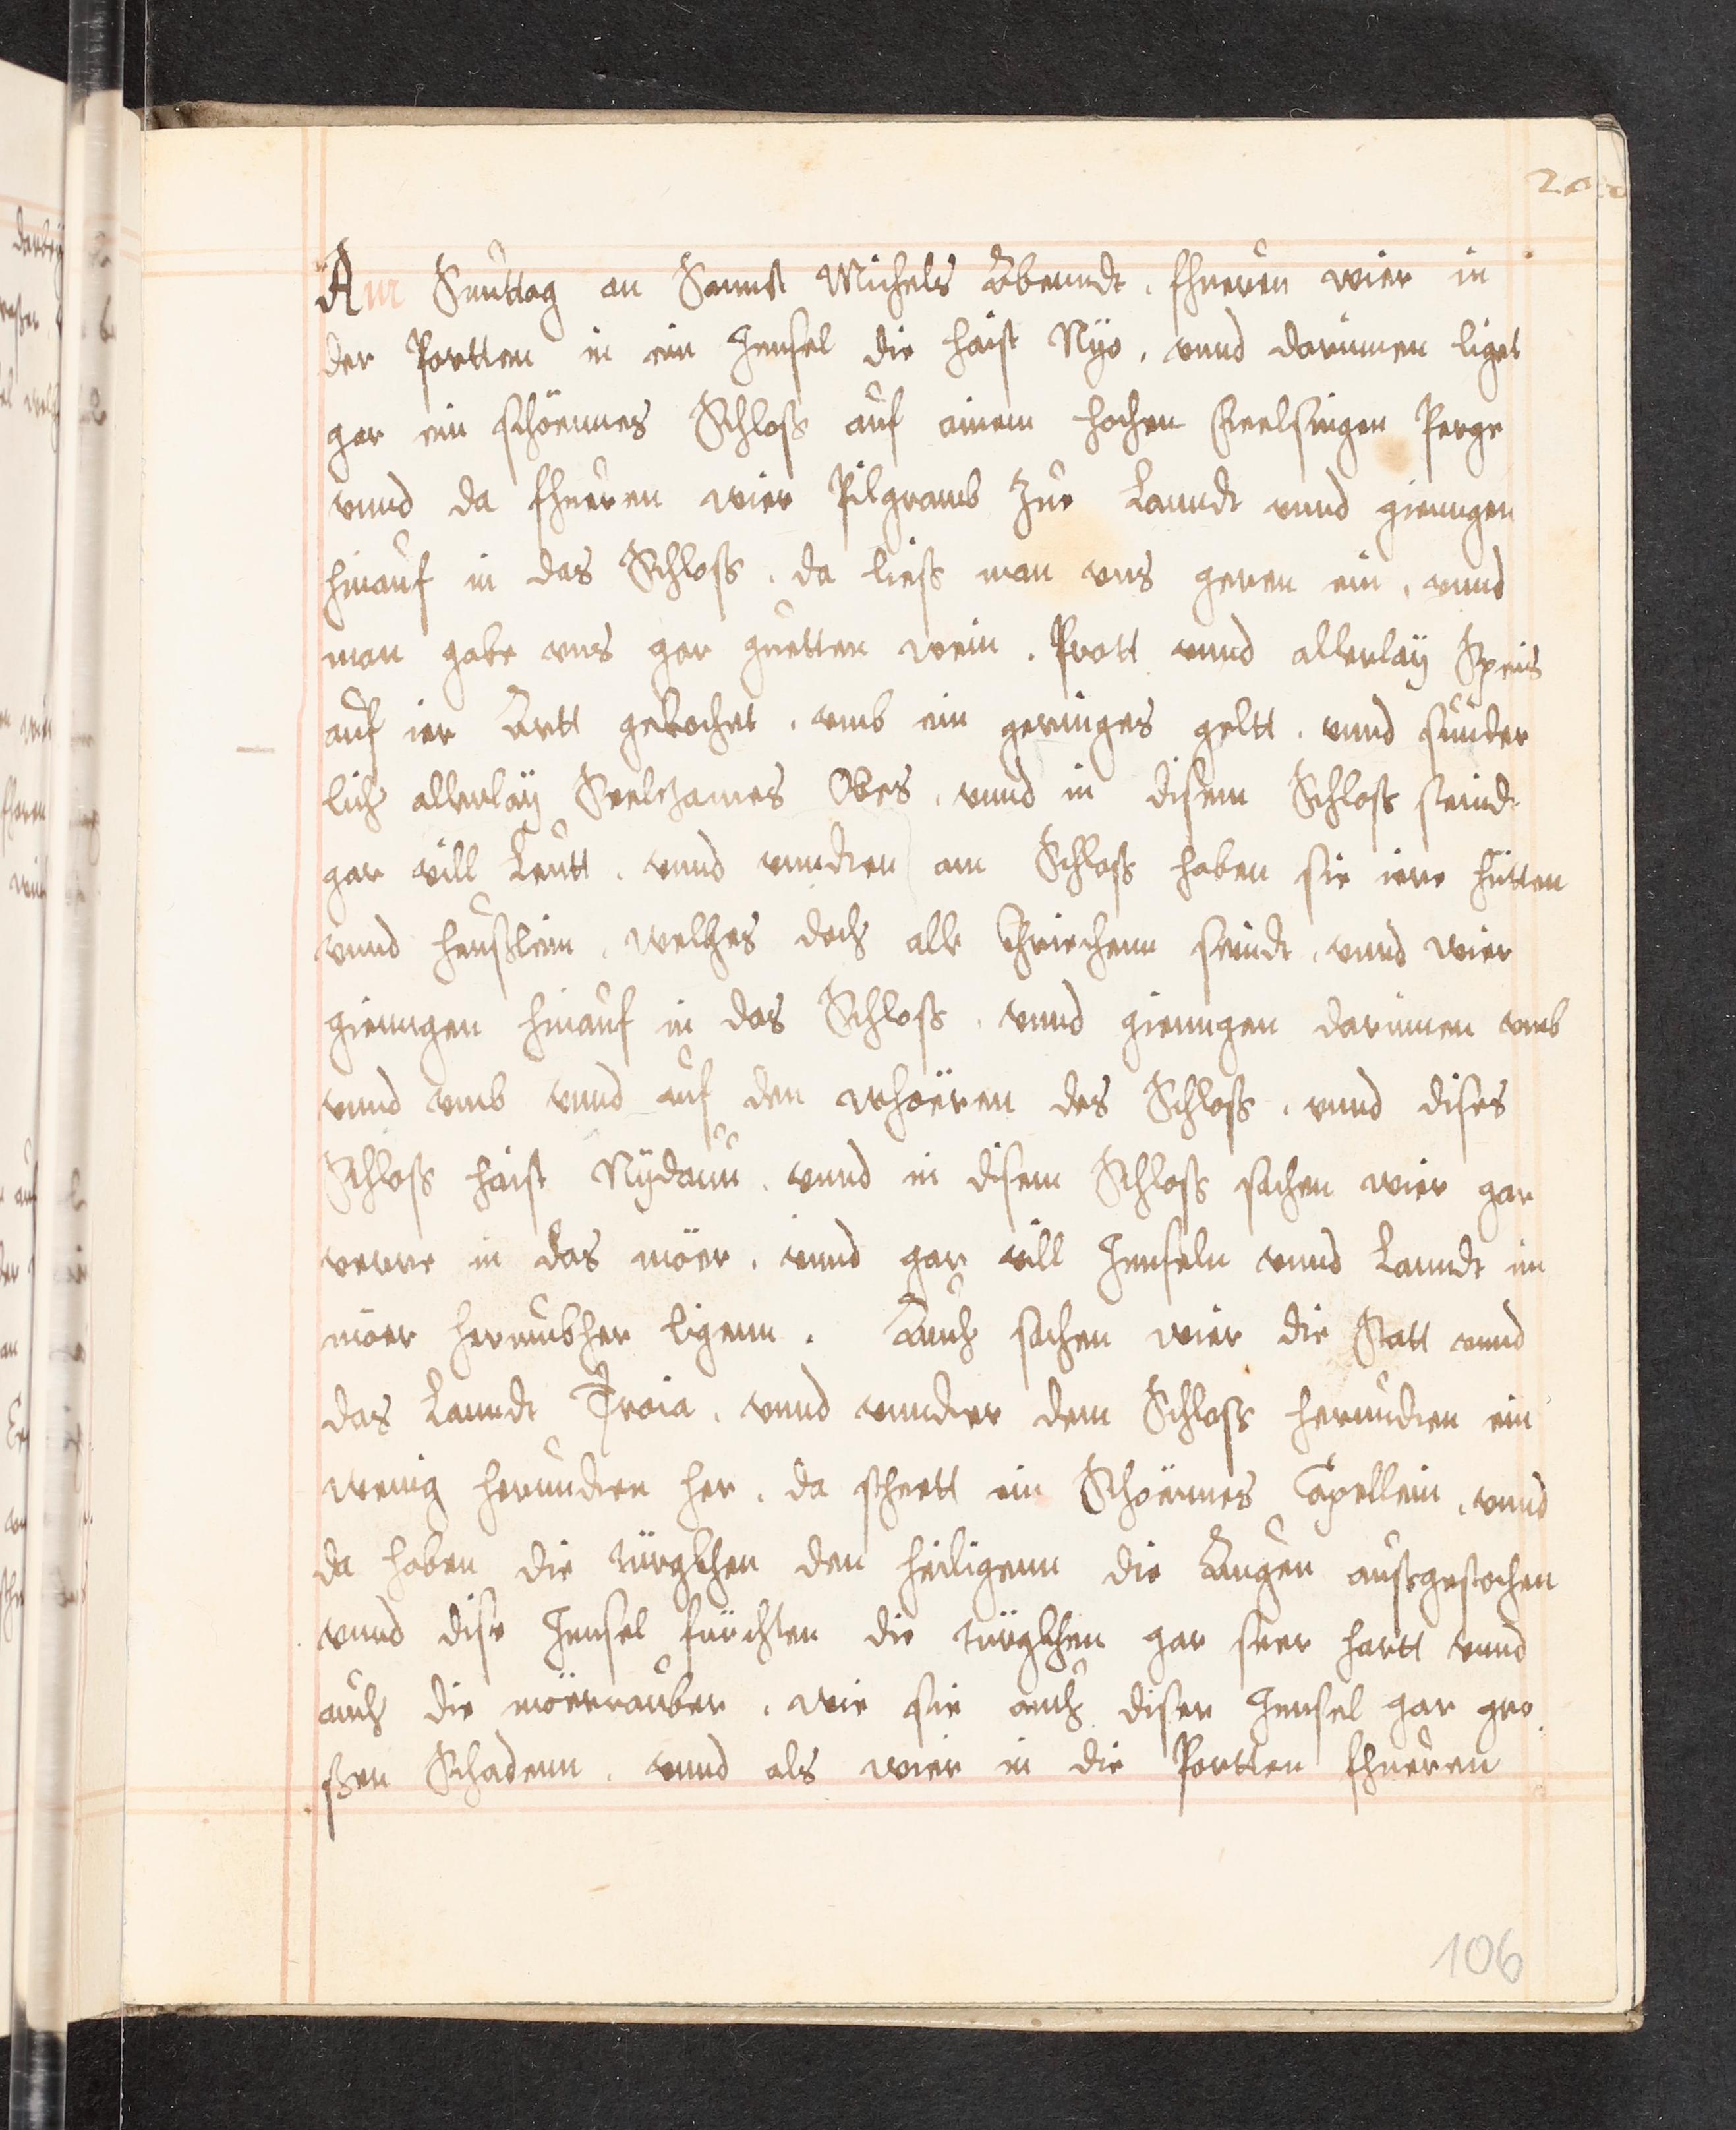 Am Suntag an Sannct Michels Abenndt, fhueren wier in
der Portten in ein Jnnsel die haist Nyo, vnnd darinnen liget
gar ein schöennes Schloss auf ainem hochen Veelsingen Perge
vnnd da fhueren wier Pilgramb zue Lanndt vnnd giengen
hinauf in das Schloss, da liess man vns geren ein, vnnd
man gabe vns gar guetten wein, Prott vnnd allerlaÿ Speis
auf ier Artt gekochet, vmb ein geringes geltt, vnnd sunder
lich allerlaÿ Seelczames Obes, vnnd in disem Schloss seindt
gar vill Leutt, vnnd vnndten am Schloss haben sie iere hütten
vnnd heusslein, welches doch alle Griechenn seindt, vnnd wier
giengen hinauf in das Schloss, vnnd giengen darinnen vmb
vnnd vmb vnnd auf den whoëren des Schloss, vnnd dises
Schloss haist Nÿdaun, vnnd in disem Schloss sachen wier gar
verre in das möer, vnnd gar vill Jnnseln vnnd Lanndt im
möer herumbher ligenn. Auch sachen wier die Statt vnnd
das Lanndt Troia, vnnd vnndter dem Schloss herundten ein
wenig herundten her, da sthett ein Schöennes Capellein, vnnd
da haben die türgkhen den heiligenn die Augen aussgestochen
vnnd dise Jnnsel fürchten die türgkhen gar seer hartt vnnd
auch die möerrauber, wie sie auch diser Jnnsel gar gro
ssen Schadenn, vnnd als wier in die Portten fhueren
106